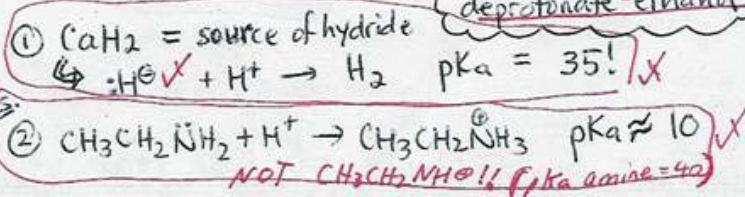 deprotonate ethanol
① CaH2 = source of hydride
↳ :H⊖ ✓ + H⁺ → H₂ pKa = 35! ✓
② CH3CH2N̈H2 + H⁺ → CH3CH2N⊕H3 pKa ≈ 10 ✓
NOT CH3CH2NH⊖!! (pKa amine = 40)